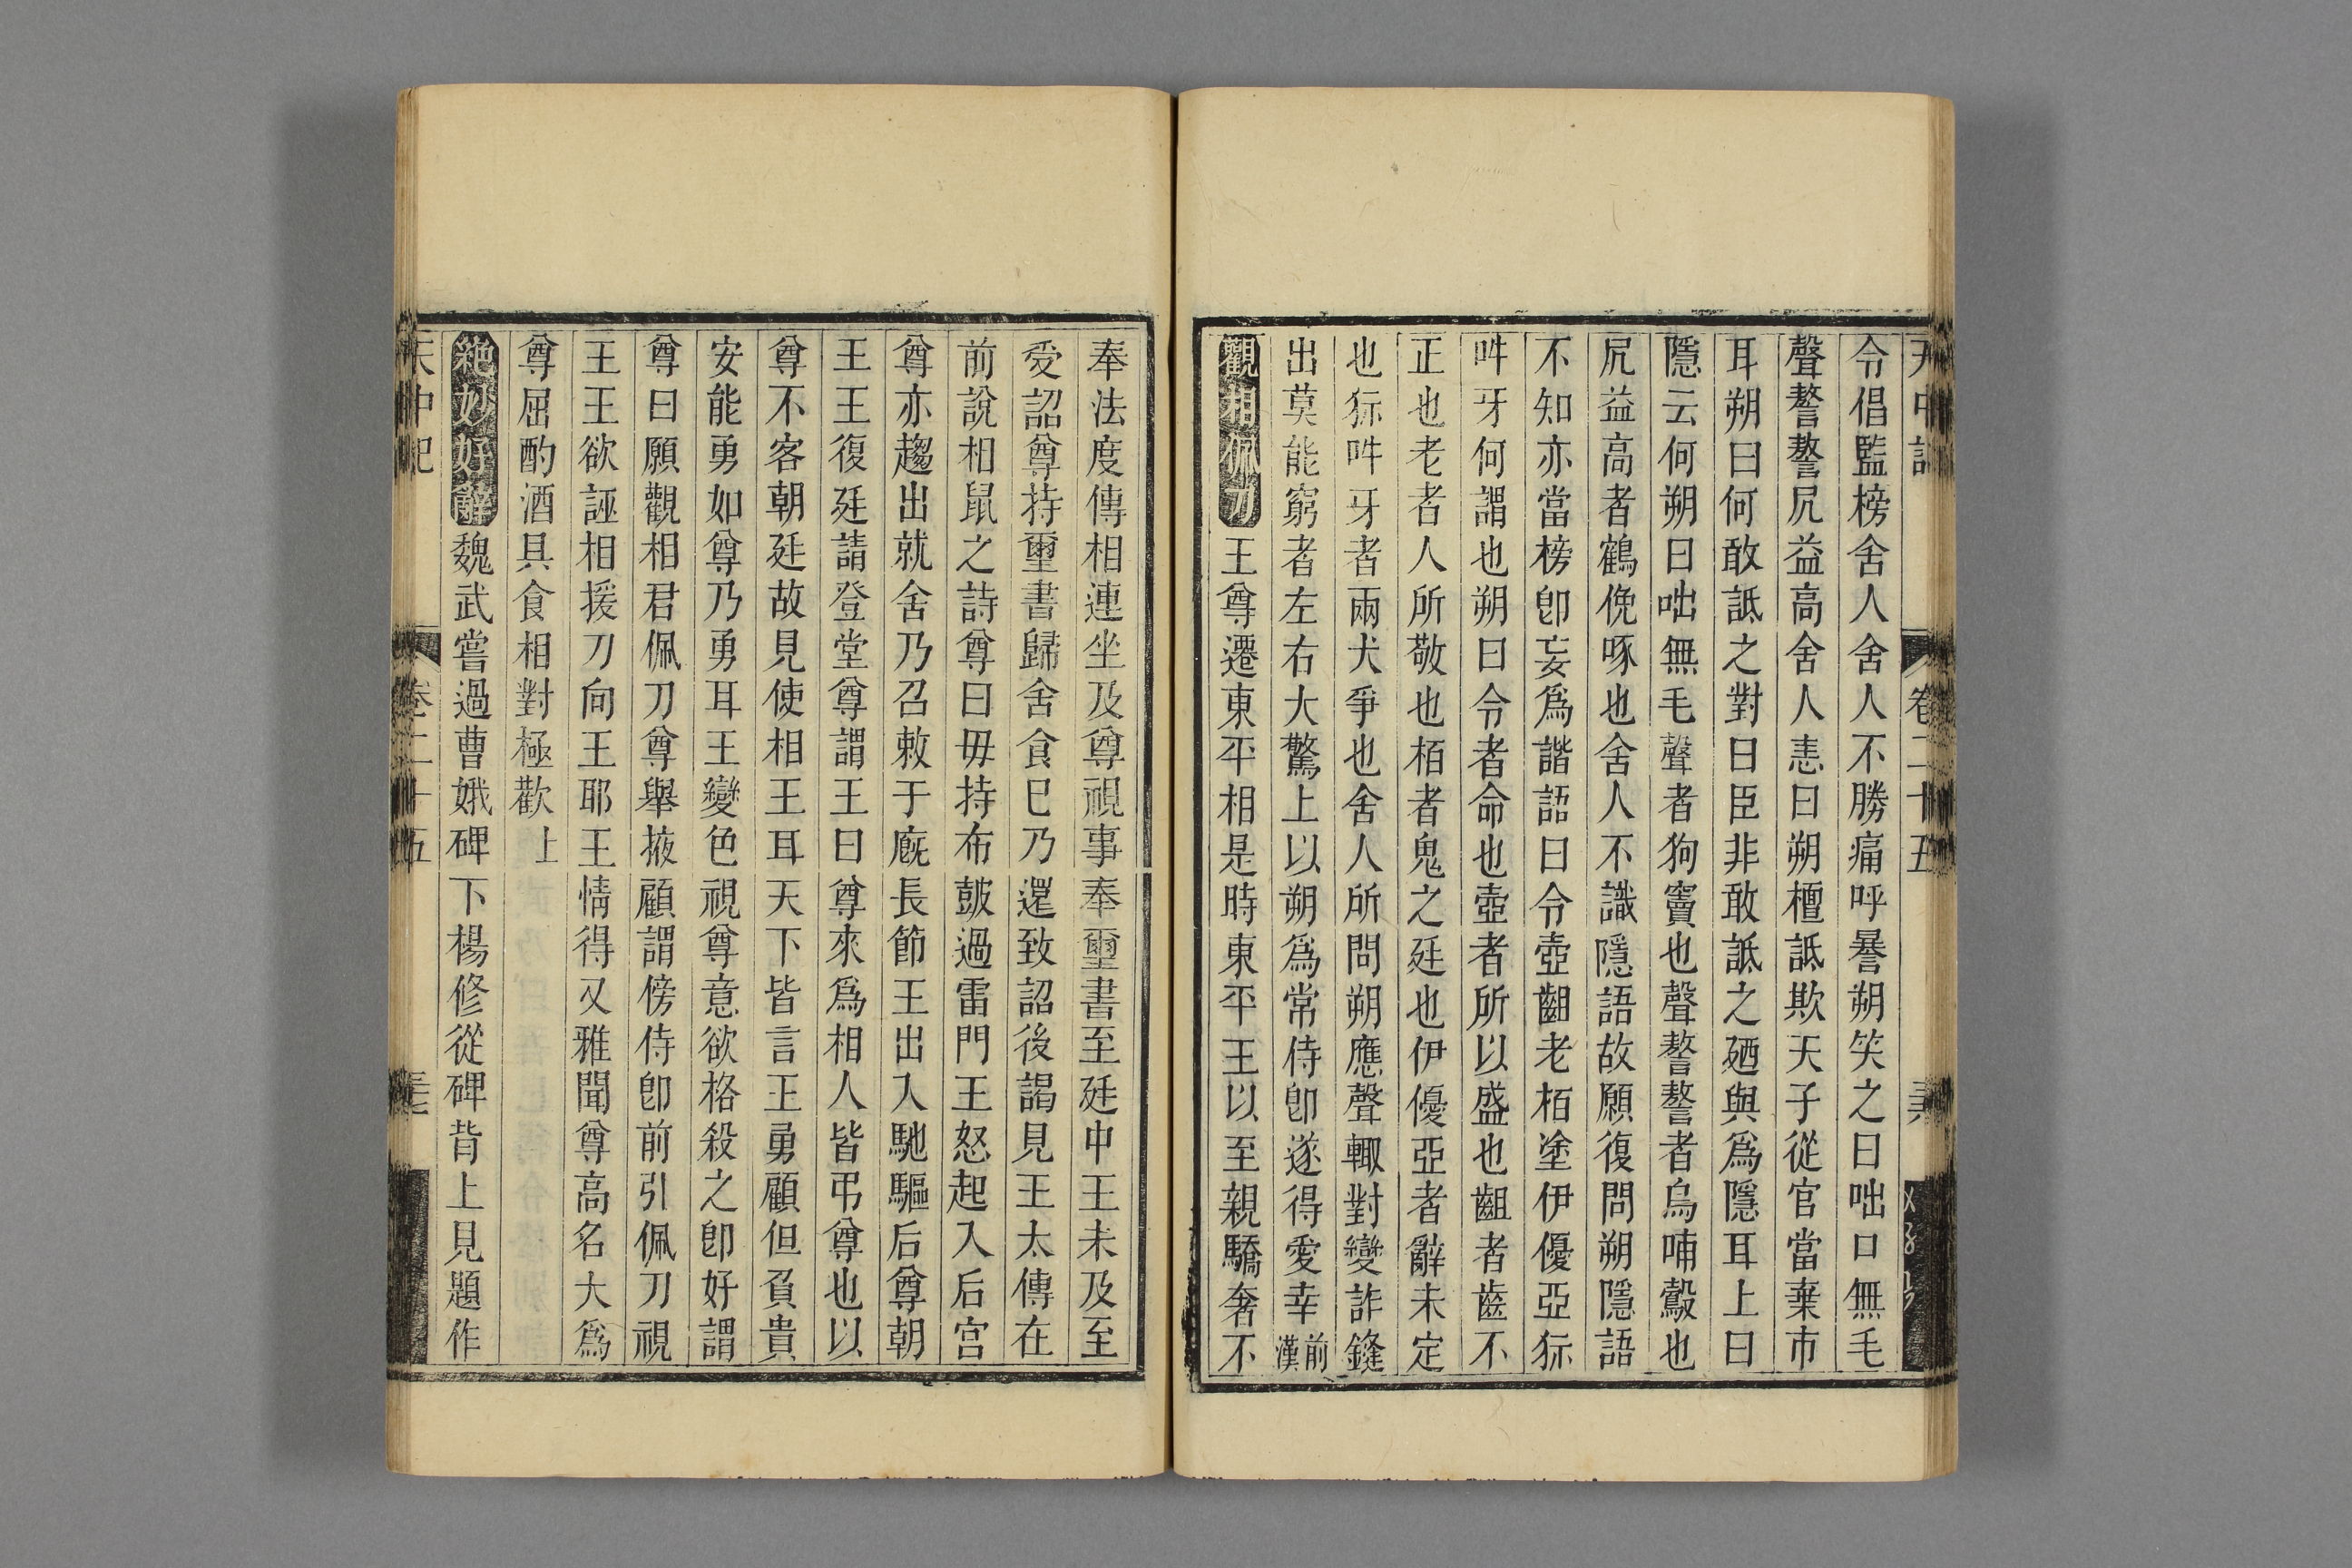 天中記 卷二十五
令倡監榜舍人舍人不勝痛呼暴朔笑之曰咄口無毛
聲謷謷尻益高舍人恚曰朔檀詆欺天子從官當棄市
耳朔曰何敢詆之對曰臣非敢詆之廼與爲隱耳上曰
隱云何朔曰咄無毛聲者狗竇也聲謷謷者烏哺鷇也
尻益高者鶴俛啄也舍人不識隱語故願復問朔隱語
不知亦當榜卽妄爲諧語曰令壺齟老栢塗伊優亞狋
吽牙何謂也朔曰令者命也壺者所以盛也齟者齒不
正也老者人所敬也栢者鬼之廷也伊優亞者辭未定
也狋吽牙者兩犬爭也舍人所問朔應聲輙對變詐鋒
出莫能窮者左右大驚上以朔爲常侍卽遂得愛幸前漢
觀相佩刀王尊遷東平相是時東平王以至親驕奢不
奉法度傳相連坐及尊視事奉璽書至廷中王未及至
受詔尊持璽書歸舍食巳乃還致詔後謁見王太傳在
前說相鼠之詩尊曰毋持布鼓過雷門王怒起入后宮
尊亦趨出就舍乃召敕于廐長節王出入馳驅后尊朝
王王復廷請登堂尊謂王曰尊來爲相人皆弔尊也以
尊不客朝廷故見使相王耳天下皆言王勇顧但負貴
安能勇如尊乃勇耳王變色視尊意欲格殺之卽好謂
尊曰願觀相君佩刀尊舉掖顧謂傍侍卽前引佩刀視
王王欲誣相援刀向王耶王情得又雅聞尊高名大爲
尊屈酌酒具食相對極歡上
絶妙好辭魏武嘗過曹娥碑下楊修從碑背上見題作
天中記 卷二十五